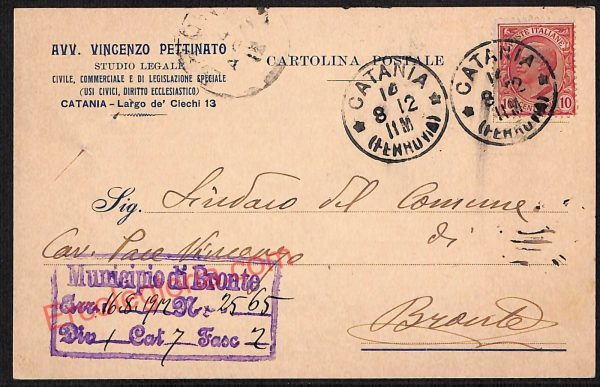 AVV. VINCENZO PETTINATO
STUDIO LEGALE
CIVILE, COMMERCIALE E DI LEGISLAZIONE SPECIALE
(USI CIVICI, DIRITTO ECCLESIASTICO)
CATANIA - Largo de' Ciechi 13
CARTOLINA POSTALE
POSTE ITALIANE
10
CATANIA
16
8 12
11M
(FERROVIA)
CATANIA
16
8 12
11M
(FERROVIA)
Sig. Sindaco del Comune
Cav. Pace Vincenzo di
Bronte
Municipio di Bronte
Arr. 16.8.1912 N. 2565
Div 1 Cat 7 Fasc 2